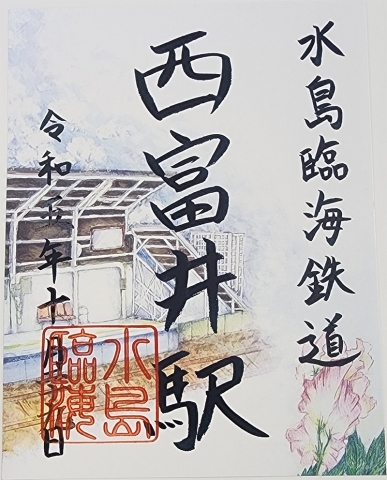 水島臨海鉄道
西富井駅
令和五年十月 日
水島
臨海